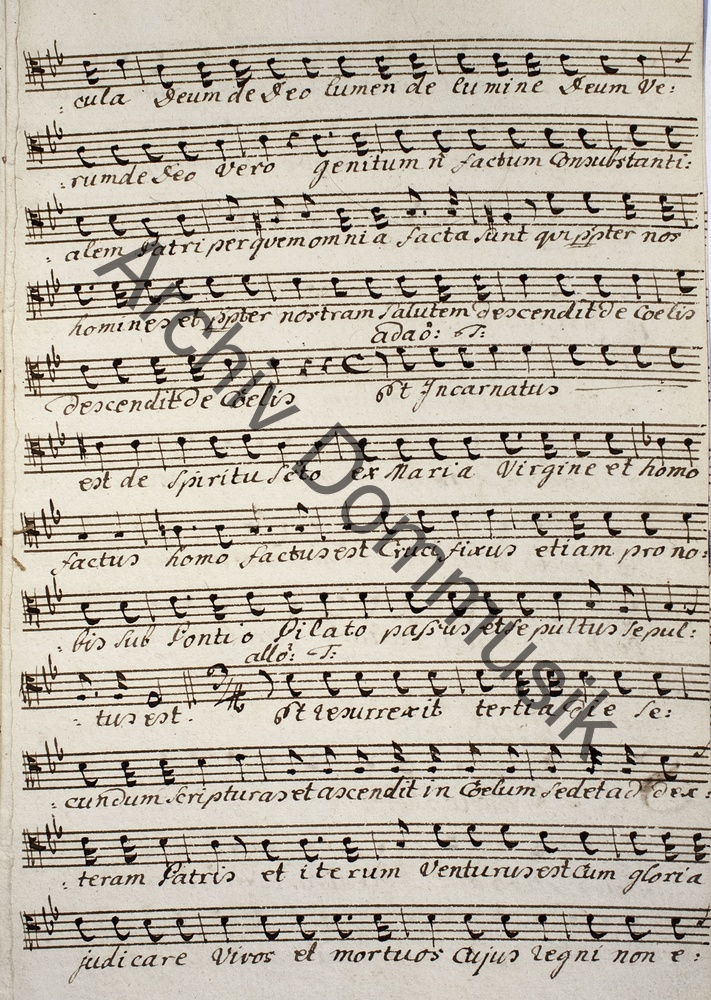 : cula Deum de Deo lumen de lumine Deum Ve:
: rum de Deo Vero genitum n̄ factum Consubstanti:
: alem Patri per quem omnia facta sunt qui ppter nos
homines et ppter nostram salutem descendit de Coelis
adaǒ: T:
descendit de Coelis Et Incarnatus
est de Spiritu Scto ex Maria Virgine et homo
factus homo factus est Crucifixus etiam pro no:
bis sub Pontio Pilato passus et sepultus sepul:
allǒ: T:
: tus est. Et resurrexit tertia die se:
: cundum scripturas et ascendit in Coelum sedet ad dex:
: teram Patris et iterum Venturus est Cum gloria
judicare Vivos et mortuos Cujus regni non e:
Archiv Dommusik